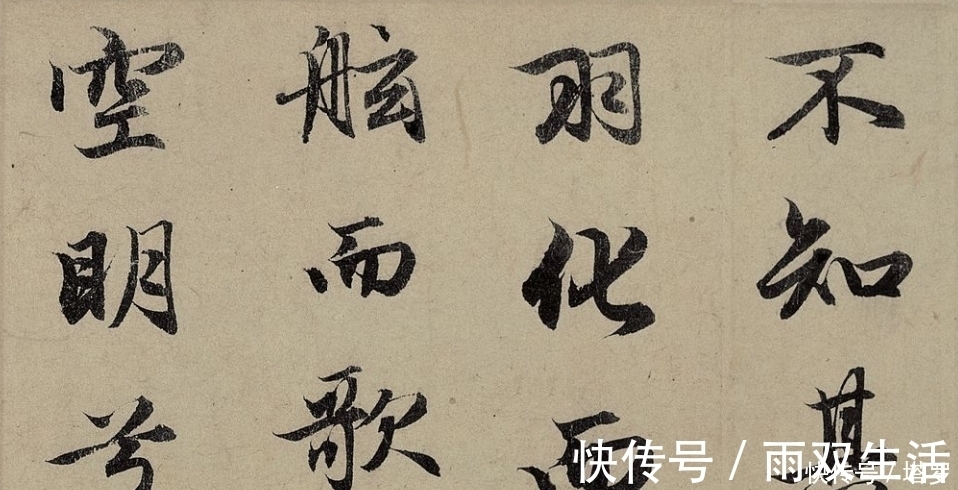 不知其
羽化而
舷而歌
空明兮
快传号 / 雨双生活
快传号 /